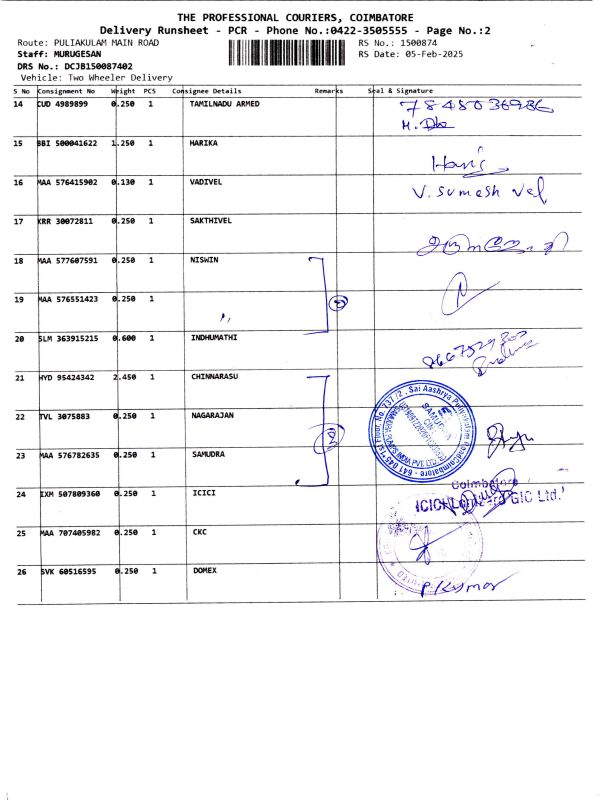 THE PROFESSIONAL COURIERS, COIMBATORE
Delivery Runsheet - PCR - Phone No.:0422-3505555 - Page No.:2
Route: PULIAKULAM MAIN ROAD RS No.: 1500874
Staff: MURUGESAN RS Date: 05-Feb-2025
DRS No.: DCJB150087402
Vehicle: Two Wheeler Delivery
S No Consignment No Weight PCS Consignee Details Remarks Seal & Signature
14 CUD 4989899 0.250 1 TAMILNADU ARMED
15 BBI 500041622 1.250 1 HARIKA
16 MAA 576415902 0.130 1 VADIVEL V. Sumesh Vel
17 KRR 30072811 0.250 1 SAKTHIVEL
18 MAA 577607591 0.250 1 NISWIN
19 MAA 576551423 0.250 1
20 SLM 363915215 0.600 1 INDHUMATHI
21 HYD 95424342 2.450 1 CHINNARASU
22 TVL 3075883 0.250 1 NAGARAJAN
23 MAA 576782635 0.250 1 SAMUDRA
Coimbatore
24 IXM 507809360 0.250 1 ICICI ICICI Lombard GIC Ltd.
25 MAA 707405982 0.250 1 CKC
26 SVK 60516595 0.250 1 DOMEX P. Kumar